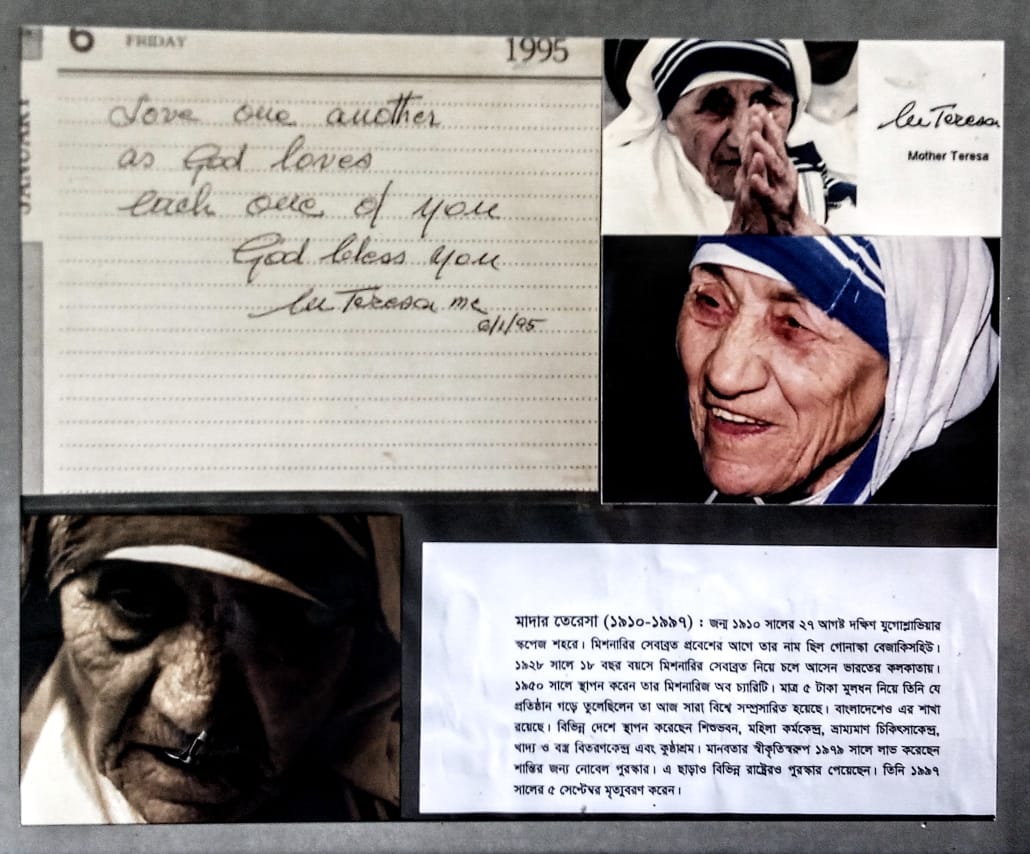 6 FRIDAY 1995
JANUARY
Love one another
as God loves
each one of you
God bless you
lu Teresa mc
6/1/95
lu Teresa
Mother Teresa
মাদার তেরেসা (১৯১০-১৯৯৭) : জন্ম ১৯১০ সালের ২৭ আগষ্ট দক্ষিণ যুগোশ্লাভিয়ার
স্কপেজ শহরে। মিশনারির সেবাব্রত প্রবেশের আগে তার নাম ছিল গোনাস্কা বেজাকিসহিউ।
১৯২৮ সালে ১৮ বছর বয়সে মিশনারির সেবাব্রত নিয়ে চলে আসেন ভারতের কলকাতায়।
১৯৫০ সালে স্থাপন করেন তার মিশনারিজ অব চ্যারিটি। মাত্র ৫ টাকা মূলধন নিয়ে তিনি যে
প্রতিষ্ঠান গড়ে তুলেছিলেন তা আজ সারা বিশ্বে সম্প্রসারিত হয়েছে। বাংলাদেশেও এর শাখা
রয়েছে। বিভিন্ন দেশে স্থাপন করেছেন শিশুভবন, মহিলা কর্মকেন্দ্র, ভ্রাম্যমাণ চিকিৎসাকেন্দ্র,
খাদ্য ও বস্ত্র বিতরণকেন্দ্র এবং কুষ্ঠাশ্রম। মানবতার স্বীকৃতিস্বরুপ ১৯৭৯ সালে লাভ করেছেন
শান্তির জন্য নোবেল পুরস্কার। এ ছাড়াও বিভিন্ন রাষ্ট্রেরও পুরস্কার পেয়েছেন। তিনি ১৯৯৭
সালের ৫ সেপ্টেম্বর মৃত্যুবরণ করেন।